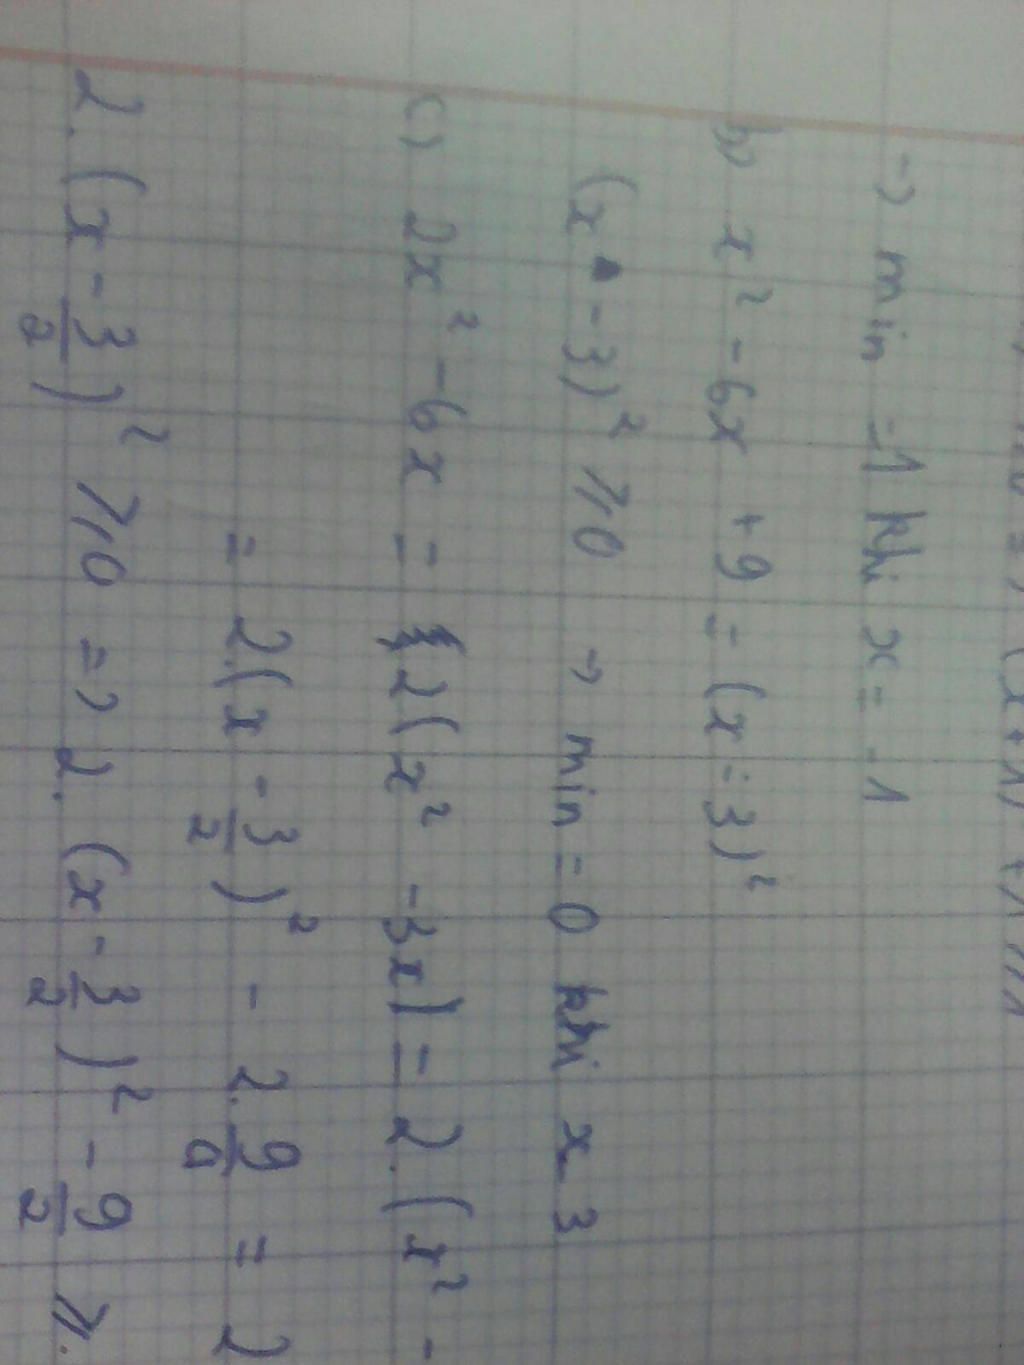 -) min = -1 khi x = -1
b) x² - 6x + 9 = (x - 3)²
(x - 3)² ≥ 0 -) min = 0 khi x = 3
c) 2x² - 6x = 2(x² - 3x) = 2.(x² -
= 2.(x - 3/2)² - 2. 9/4 = 2
2.(x - 3/2)² ≥ 0 =) 2. (x - 3/2)² - 9/2 ≥